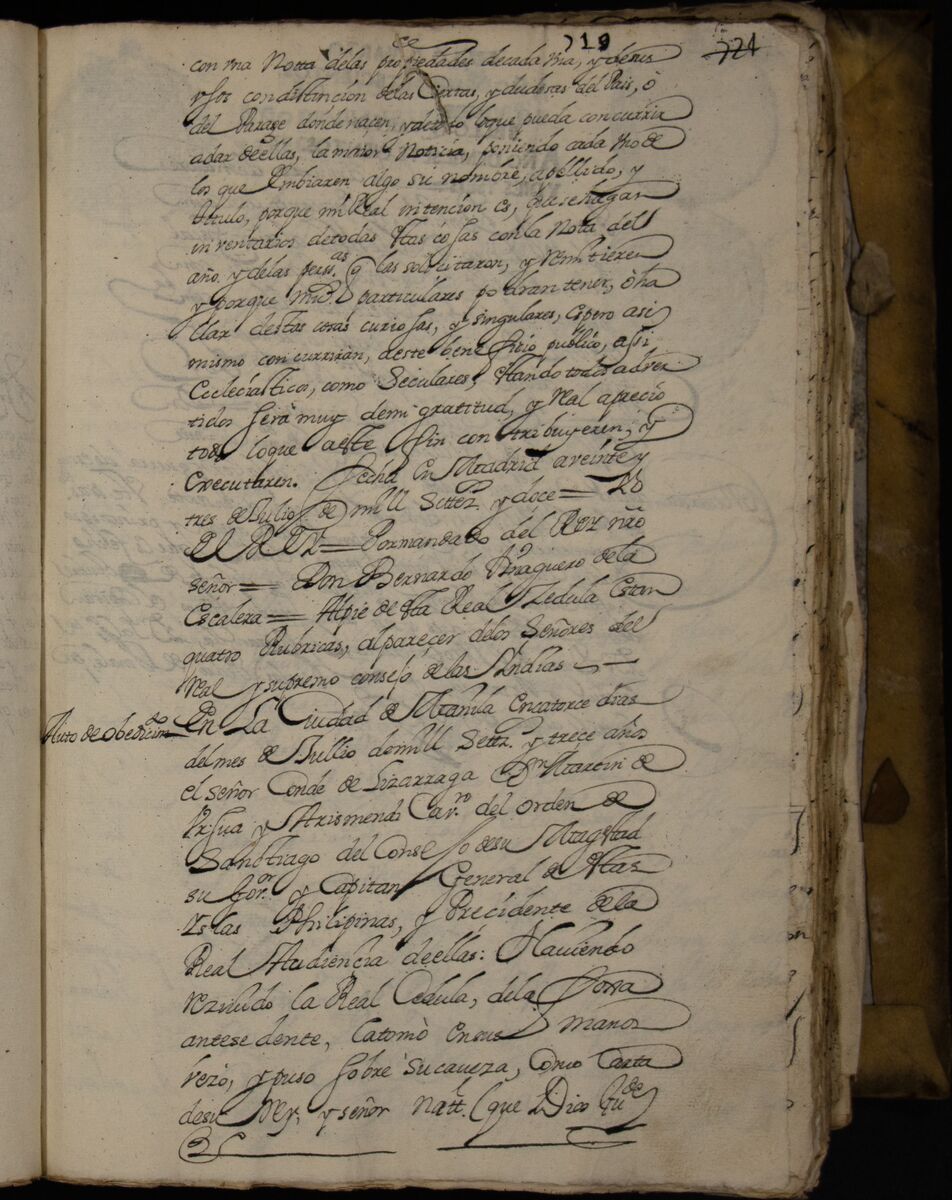 219
221
con una Notta delas propriedades decada una, y desus
usos condistinción delas Ciertas, y dudosas del Pais, ò
del Parage donde nacen, y de todo loque pueda concurrir
adar deellas, la mayor Noticia, poniendo cada uno de
los que Embiaren algo su nombre, apellido, y
titulo, porque mi Real intención es, quesehagan
inventarios detodas Estas cosas con la Nota del
año, y delas perss.as q las soliçitaron, y remitieren
y porque muchos particulares podran tener, ò ha
llar destas otras curiosas, y singulares, espero asi
mismo concurriràn, aeste beneficio publico, assi
Ecclesiasticos, como Seculares, Estando todos adver
tidos serà muy demi gratitud, y Real aprecio
todo loque aeste fin contribuyeren, y
Executaren. Fecha En Madrid aveinte y
tres de Julio de mill Settez.s y doce = YO
EL REY = Por mandado del Rey nrô
señor = Don Bernardo Tinaguero de la
Escalera = Alpie de Esta Real Zedula Estan
quatro Rubricas, alpareçer delos Señores del
Real y supremo consejo de las Indias
Auto de obedecim.to En La Ciudad de Manila encatorce dias
del mes de Jullio demill Settez.s y trece años
el señor Conde de Lizarraga Dn Martin de
Ursua y Arismendi Cav.ro del orden de
Sanctiago del Consejo desu Magestad
su Gov.or y Capitan General de Estas
Yslas Philipinas, y Precidente de la
Real Audiencia deellas: Haviendo
rezivido la Real Cedula, dela foxa
antesedente, latomò ensus manos
vezò, y puso sobre sucaveza, Como Carta
desu Rey, y señor natt.l (que Dios gu.de)